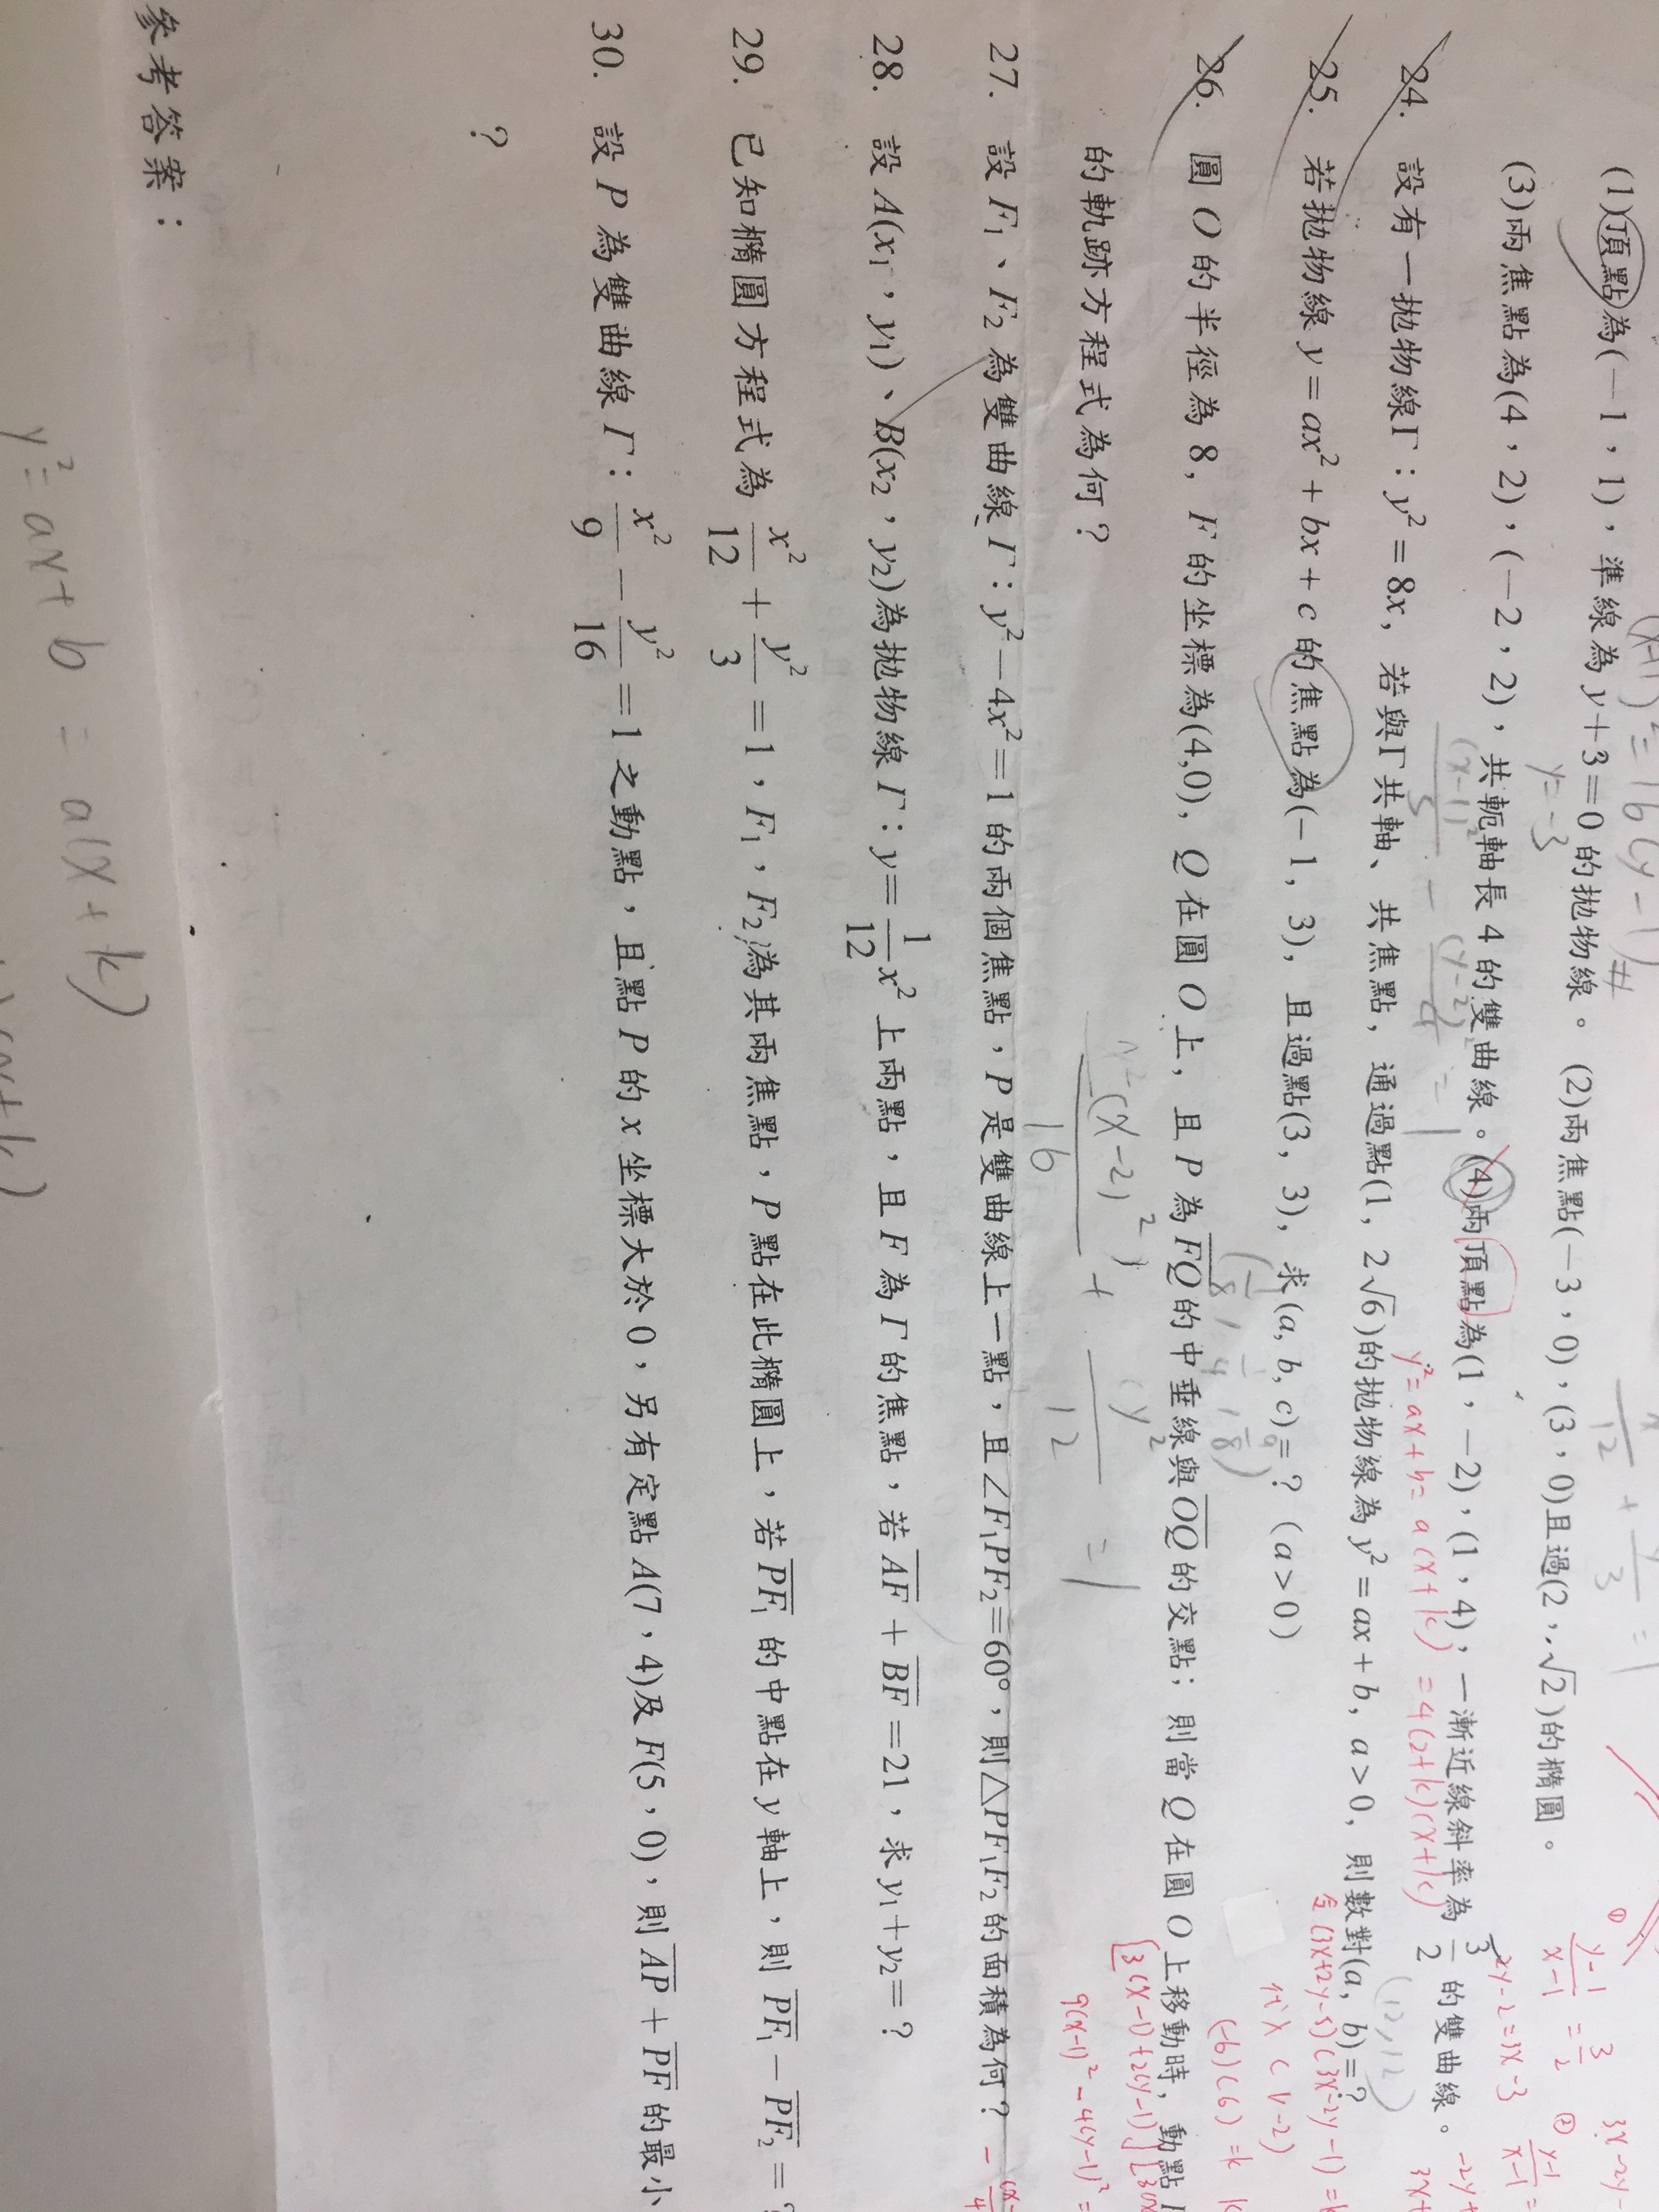 (1)頂點為(－1，1)，準線為 y＋3＝0 的拋物線。 (2)兩焦點(－3，0)，(3，0)且過(2，√2)的橢圓。
y=-3
(3)兩焦點為(4，2)，(－2，2)，共軛軸長 4 的雙曲線。(4)兩頂點為(1，－2)，(1，4)，一漸近線斜率為 3/2 的雙曲線。
(x-1)²/5 - (y-2)²/4 = 1
y²=ax+b=a(x+k)=4(2+k)(x+k)
24. 設有一拋物線Γ：y²＝8x，若與Γ共軸、共焦點，通過點(1，2√6)的拋物線為 y²＝ax＋b，a＞0，則數對(a，b)＝?
(12,12)
25. 若拋物線 y＝ax²＋bx＋c 的焦點為(－1，3)，且過點(3，3)，求(a, b, c)＝?（a＞0）
26. 圓 O 的半徑為 8，F 的坐標為(4,0)，Q 在圓 O 上，且 P 為 FQ 的中垂線與 OQ 的交點；則當 Q 在圓 O 上移動時，動點
的軌跡方程式為何？
(x-2)²/16 + y²/12 = 1
27. 設 F₁、F₂ 為雙曲線 Γ：y²－4x²＝1 的兩個焦點，P 是雙曲線上一點，且∠F₁PF₂＝60°，則△PF₁F₂ 的面積為何？
28. 設 A(x₁，y₁)、B(x₂，y₂)為拋物線 Γ：y＝1/12 x² 上兩點，且 F 為 Γ 的焦點，若 AF＋BF＝21，求 y₁＋y₂＝?
29. 已知橢圓方程式為 x²/12＋y²/3＝1，F₁，F₂為其兩焦點，P 點在此橢圓上，若 PF₁ 的中點在 y 軸上，則 PF₁－PF₂＝?
30. 設 P 為雙曲線 Γ：x²/9－y²/16＝1 之動點，且點 P 的 x 坐標大於 0，另有定點 A(7，4)及 F(5，0)，則 AP＋PF 的最小
?
參考答案：
y²=ax+b=a(x+k)
① (y-1)/(x-1) = 3/2
2y-2=3x-3
令(3x+2y-5)(3x-2y-1)=k
代入(1,-2)
(-6)(6)=k
9(x-1)²-4(y-1)²=